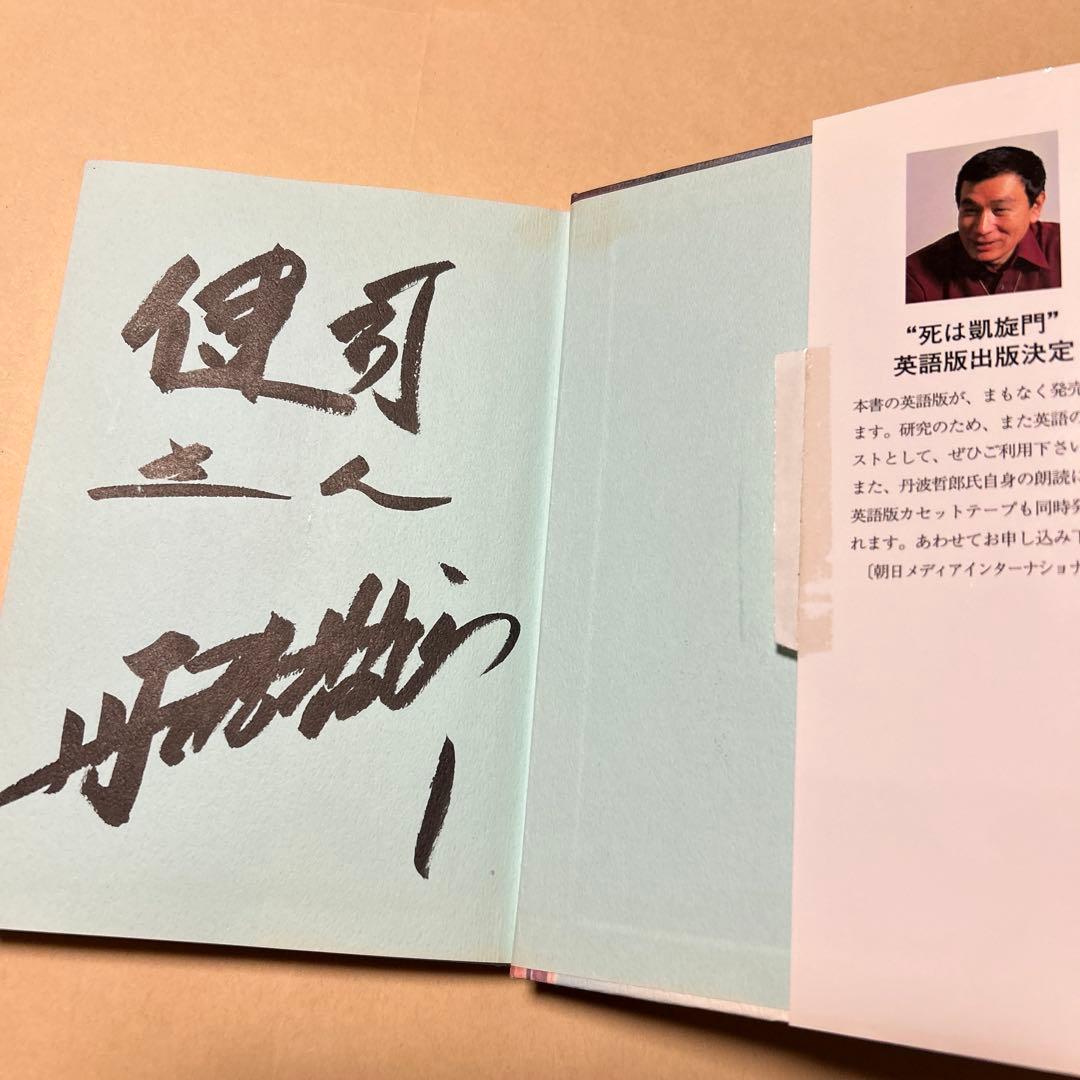 丹波哲郎
“死は凱旋門”
英語版出版決定
本書の英語版が、まもなく発売
ます。研究のため、また英語の
ストとして、ぜひご利用下さい
また、丹波哲郎氏自身の朗読に
英語版カセットテープも同時発
れます。あわせてお申し込み下
〔朝日メディアインターナショナ